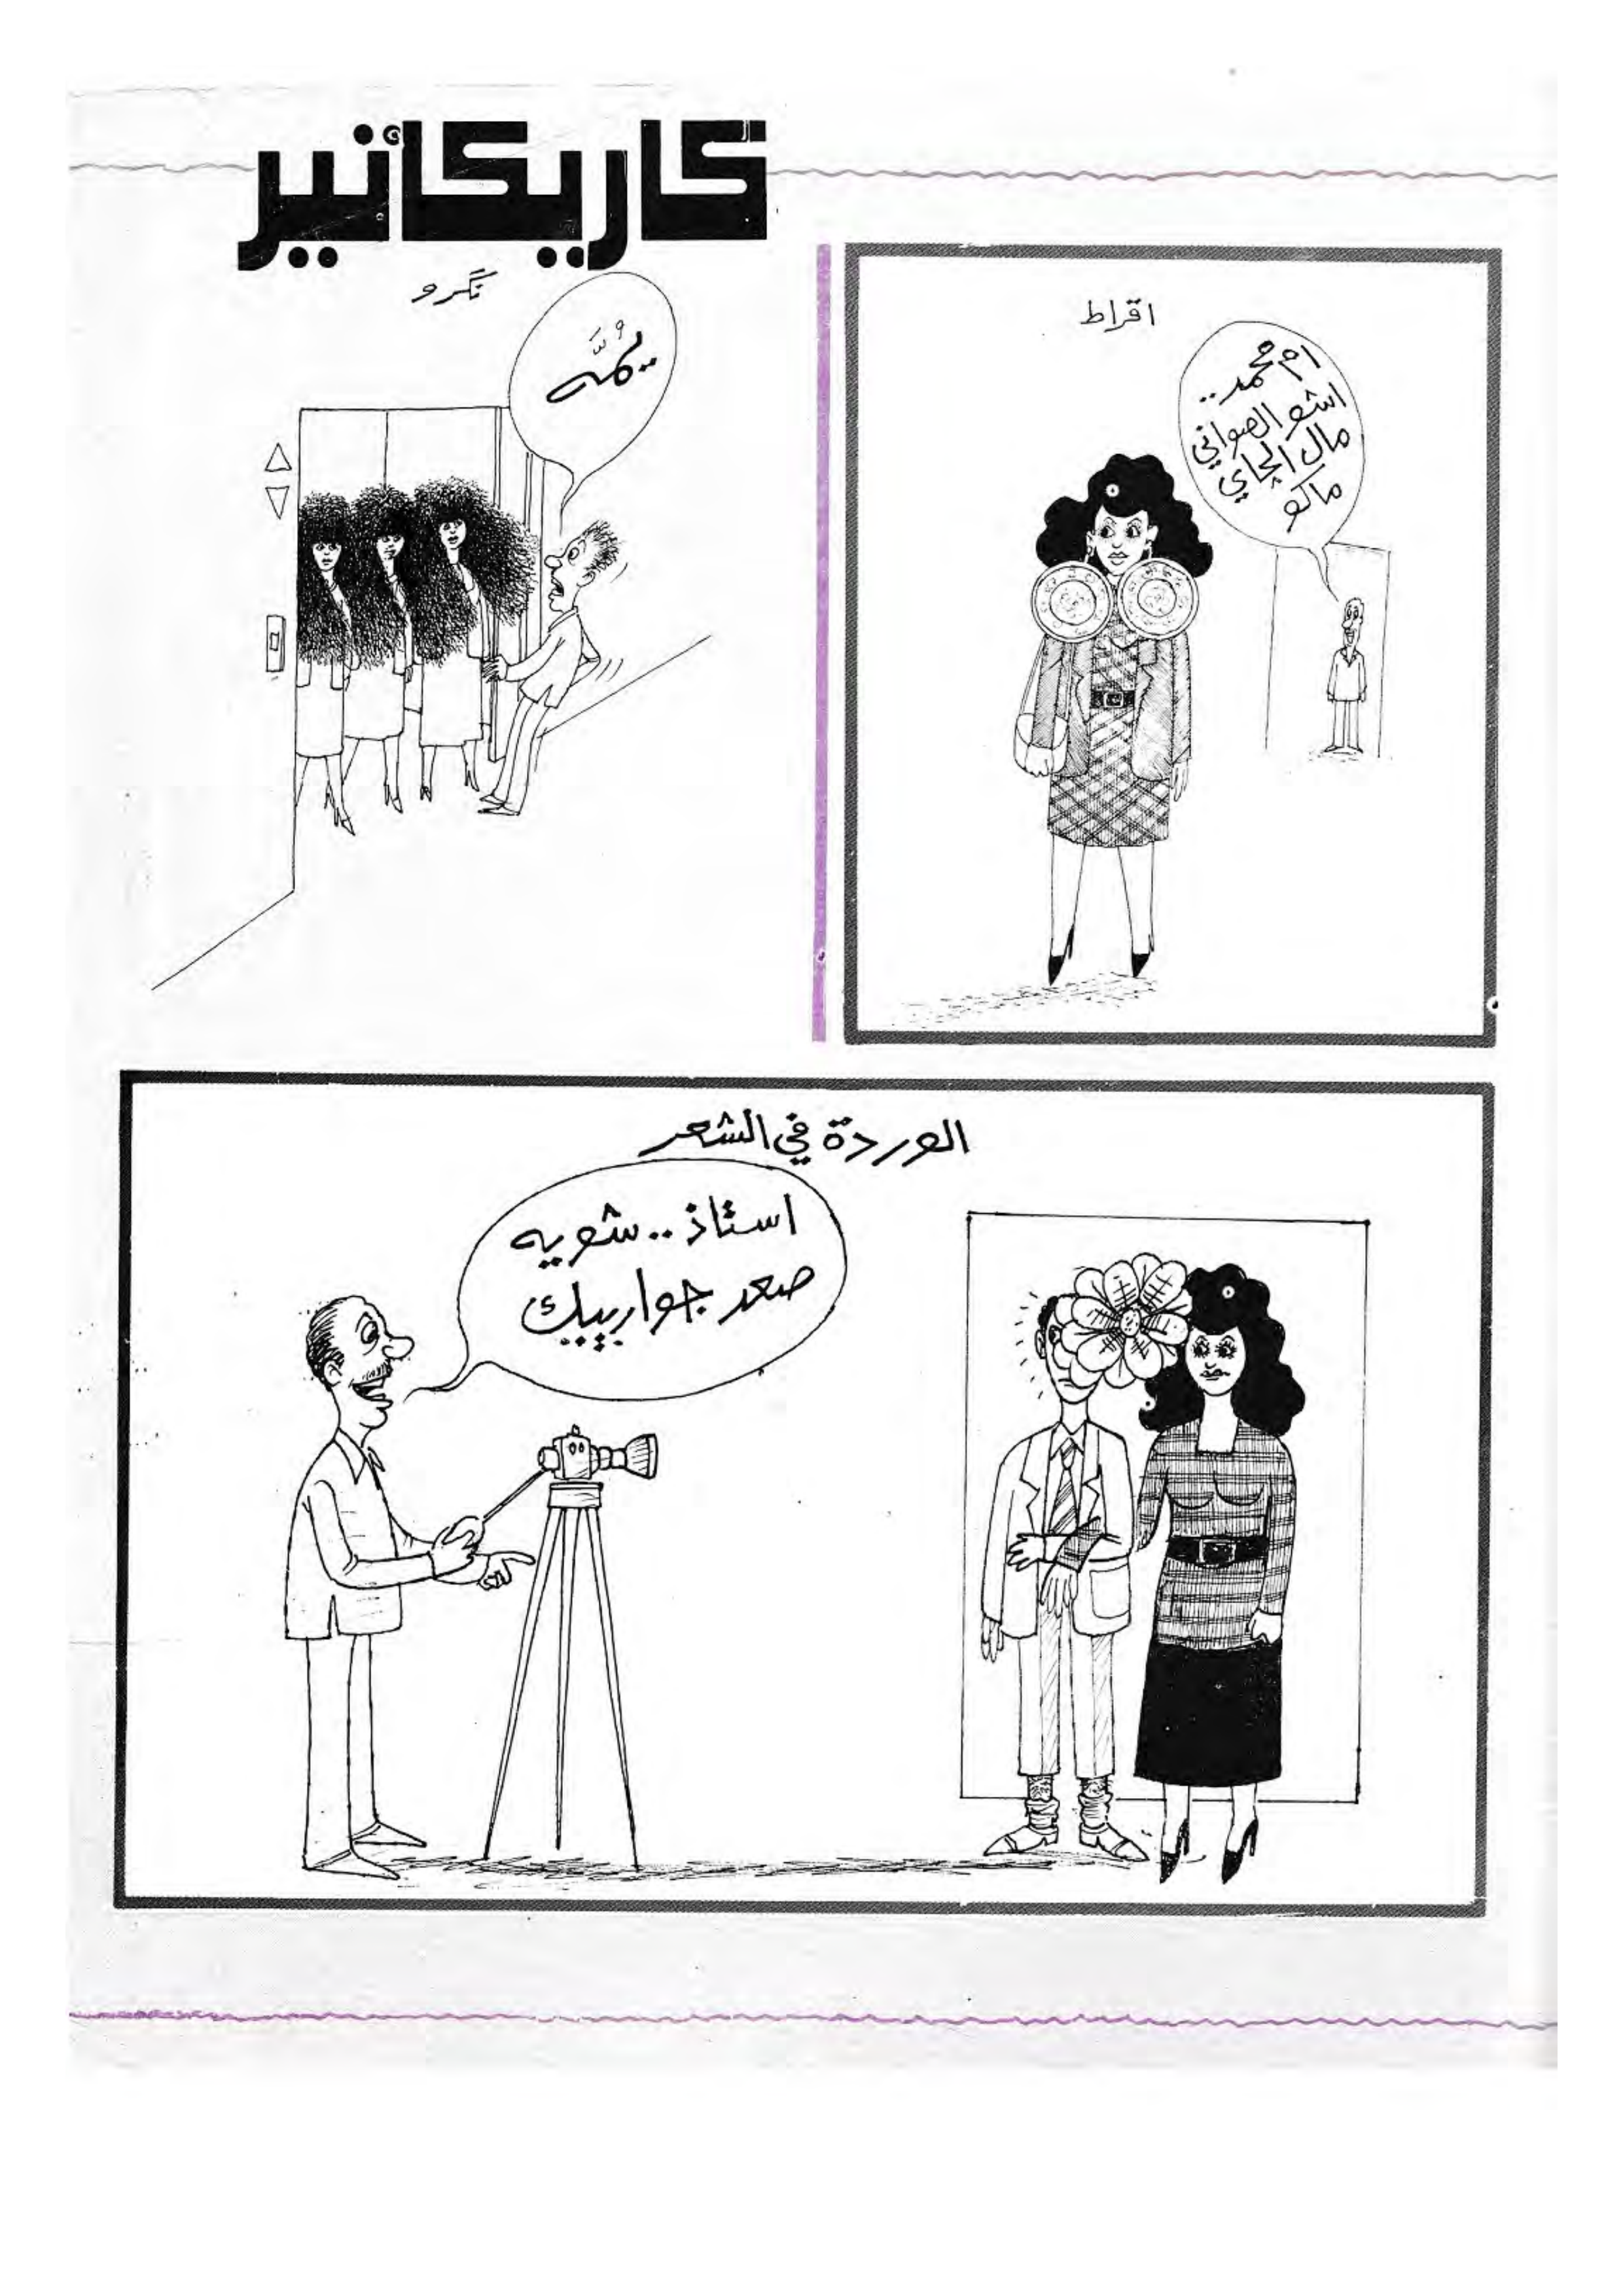 كاريكاتير
نگرو
يُمَّه
اقراط
ام محمد..
اشو الصواني
مال الچاي
ماكو
الوردة في الشعر
استاذ.. شويه
صعد جواريبك